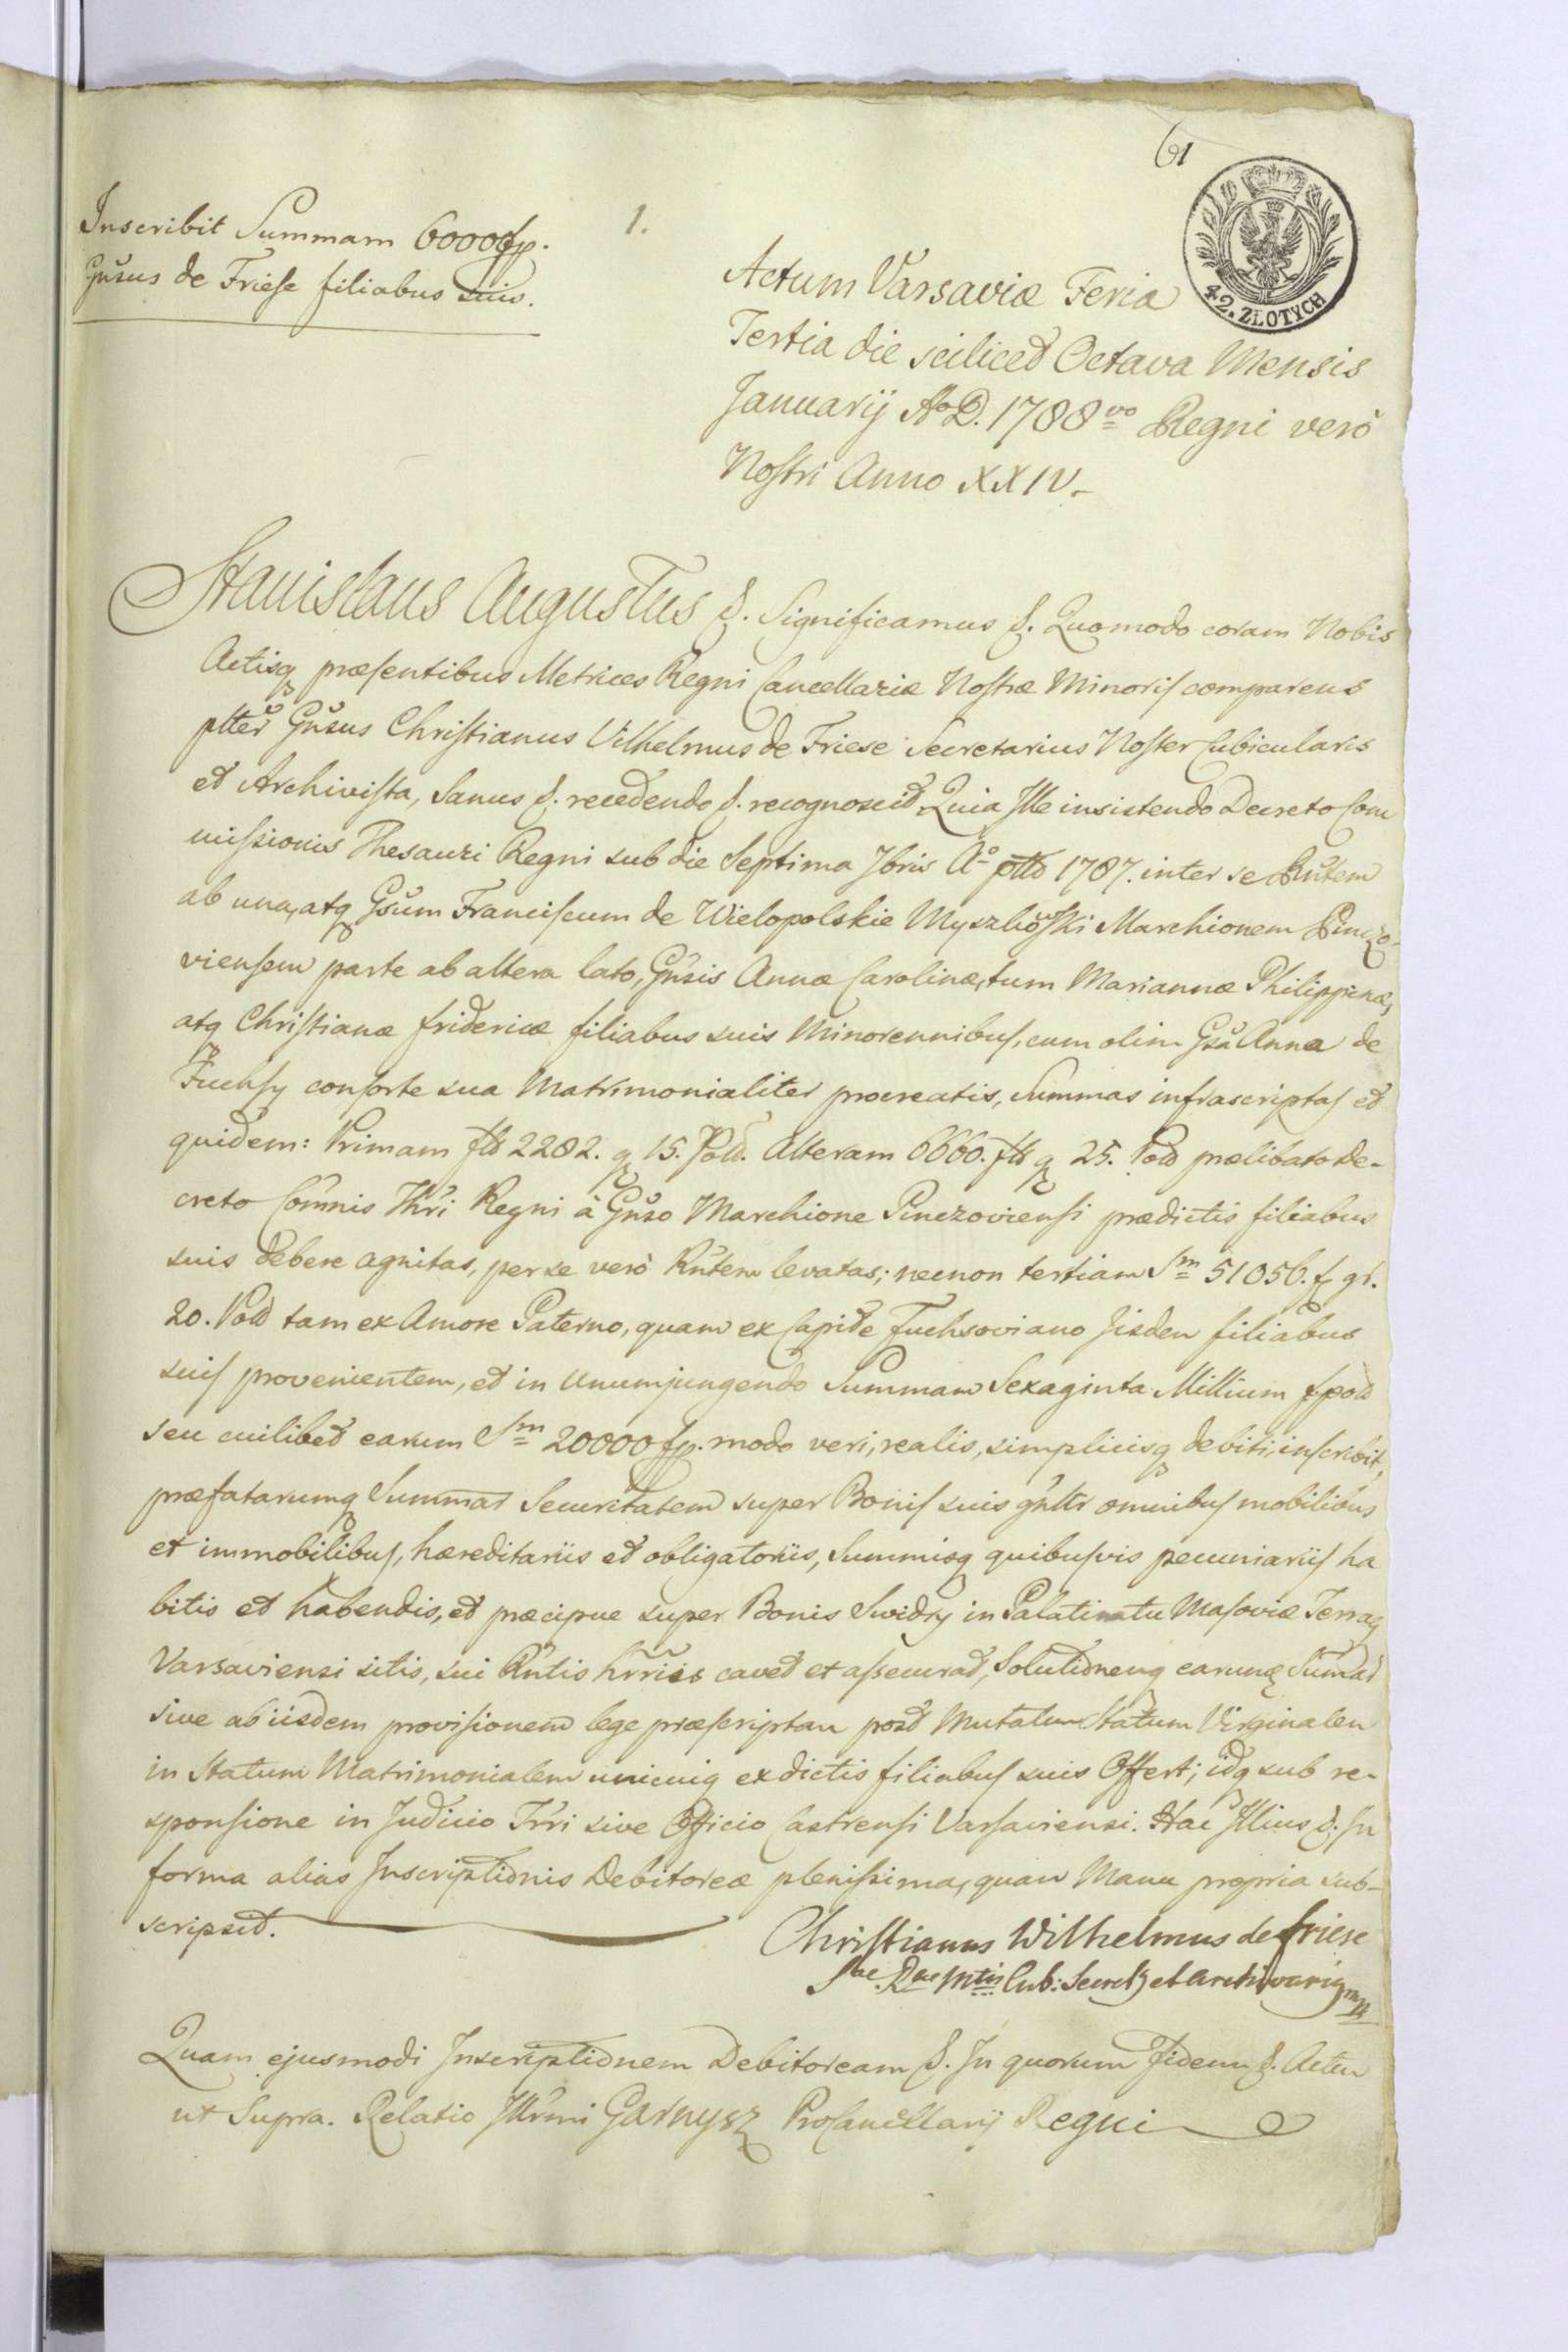 61
42. ZŁOTYCH
Inscribit Summam 60000 fp.
Gnsus de Friese filiabus suis.
1.
Actum Varsaviæ Feria
Tertia die scilicet Octava Mensis
Januarij AoD. 1788vo Regni verò
Nostri Anno XXIV.
Stanislaus Augustus &. Significamus &. Quomodo coram Nobis
Actisq præsentibus Metrices Regni Cancellariæ Nostræ Minoris comparens
plter Gnsus Christianus Vilhelmus de Friese Secretarius Noster Cubicularis
et Archivista, Sanus &. recedendo &. recognoscit Quia Ille insistendo Decreto Com
missionis Thesauri Regni sub die Septima Jbris Ao 1787. inter se Rntem
ab una, atq Gsum Franciscum de Wielopolskie Myszkowski Marchionem Pinczo-
viensem parte ab altera lato, Gnsis Annæ Carolinæ, tum Mariannæ Philippinæ,
atq Christianæ Fridericæ filiabus suis Minorennibus, cum olim Gsa Anna de
Fuchsy consorte sua Matrimonialiter procreatis, Summas infrascriptas et
quidem: Primam fld 2282. g 15. Pold. Alteram 6660. fld g 25. Pold prælibato De-
creto Comnis Thri Regni à Gnso Marchione Pinczoviensi prædictis filiabus
suis debere agnitas, per se verò Rntem levatas; necnon tertiam Sm 51056. f gr.
20. Pold tam ex Amore Paterno, quam ex Capite Fuchsoviano Iisdem filiabus
suis provenientem, et in unum jungendo Summam Sexaginta Millium f pold
seu cuilibet earum Sm 20000 fp. modo veri, realis, simplicisq debiti, inscribit,
præfatarumq Summar Securitatem super Bonis suis gnltr omnibus mobilibus
et immobilibus, hæreditariis et obligatoriis, Summisq quibusvis pecuniariis ha
bitis et habendis, et præcipue super Bonis Swidry in Palatinatu Masoviæ Terraq
Varsaviensi sitis, sui Rntis hrriis cavet et assecurat, Solutionemq earumq Summar
sive ab iisdem provisionem lege præscriptam post Mutatum Statum Virginalem
in Statum Matrimonialem unicuiq ex dictis filiabus suis Offert; idq sub re-
sponsione in Judicio Trri sive Officio Castrensi Varsaviensi. Hac Illius &. In
forma alias Inscriptionis Debitoreæ plenissima, quam Manu propria sub-
scripsit.
Christianus Wilhelmus de Friese
Sae Rae Mtis Cub: Secret et Archivariq mp
Quam ejusmodi Inscriptionem Debitoream &. In quorum Fidem &. Actum
ut Supra. Relatio Illrmi Garnysz ProCancellarij Regni